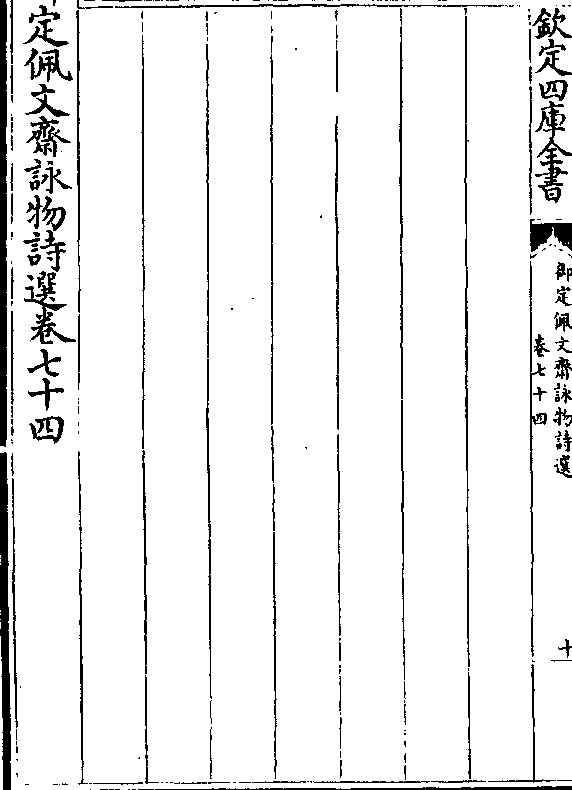 欽定四庫全書
御定佩文齋詠物詩選
卷七十四
十
定佩文齋詠物詩選卷七十四